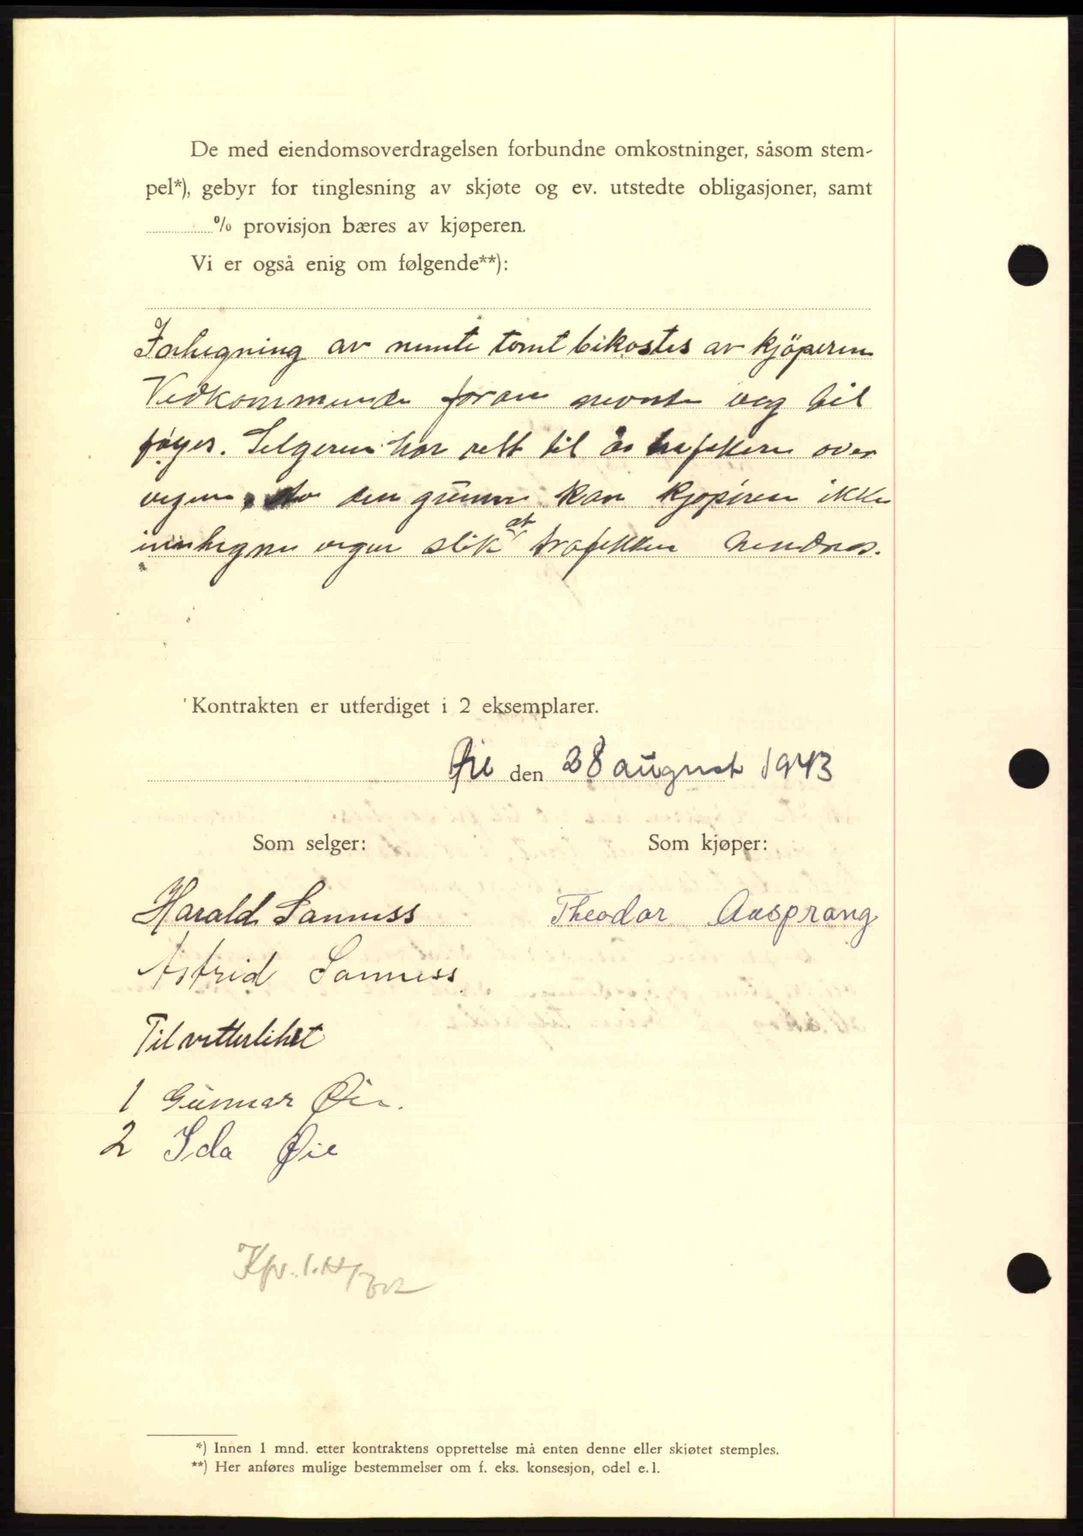 De med eiendomsoverdragelsen forbundne omkostninger, såsom stem-
pel*), gebyr for tinglesning av skjøte og ev. utstedte obligasjoner, samt
............% provisjon bæres av kjøperen.
Vi er også enig om følgende**):
Inhegning av nemte tomt bekostes av kjöperen
Vedkommende foran nevnte veg til
føyes. Selgeren har rett til å trafikkere over
vegen, av den grunn kan kjøperen ikke
innhegne vegen slik at trafikken hendres.
Kontrakten er utferdiget i 2 eksemplarer.
Øie den 28 august 1943
Som selger:
Som kjøper:
Harald Sanness
Theodor Aasprang
Astrid Sanness
Til vitterlihet
1 Gunnar Øie.
2 Ida Øie
*) Innen 1 mnd. etter kontraktens opprettelse må enten denne eller skjøtet stemples.
**) Her anføres mulige bestemmelser om f. eks. konsesjon, odel e. l.